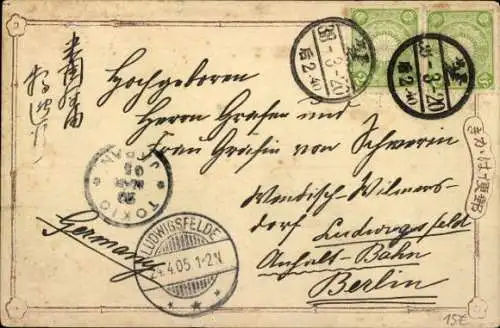 Hochgeboren
Herrn Grafen und
Frau Gräfin von Schwerin
Wendisch-Wilmers-
dorf Ludwigsfelde
Anhalt-Bahn
Berlin
Germany
38-3-20
后2-40
38-3-20
后2-40
TOKIO
JAPAN
22
MAR
05
LUDWIGSFELDE
24.4.05 1-2N
きかは便郵
15€